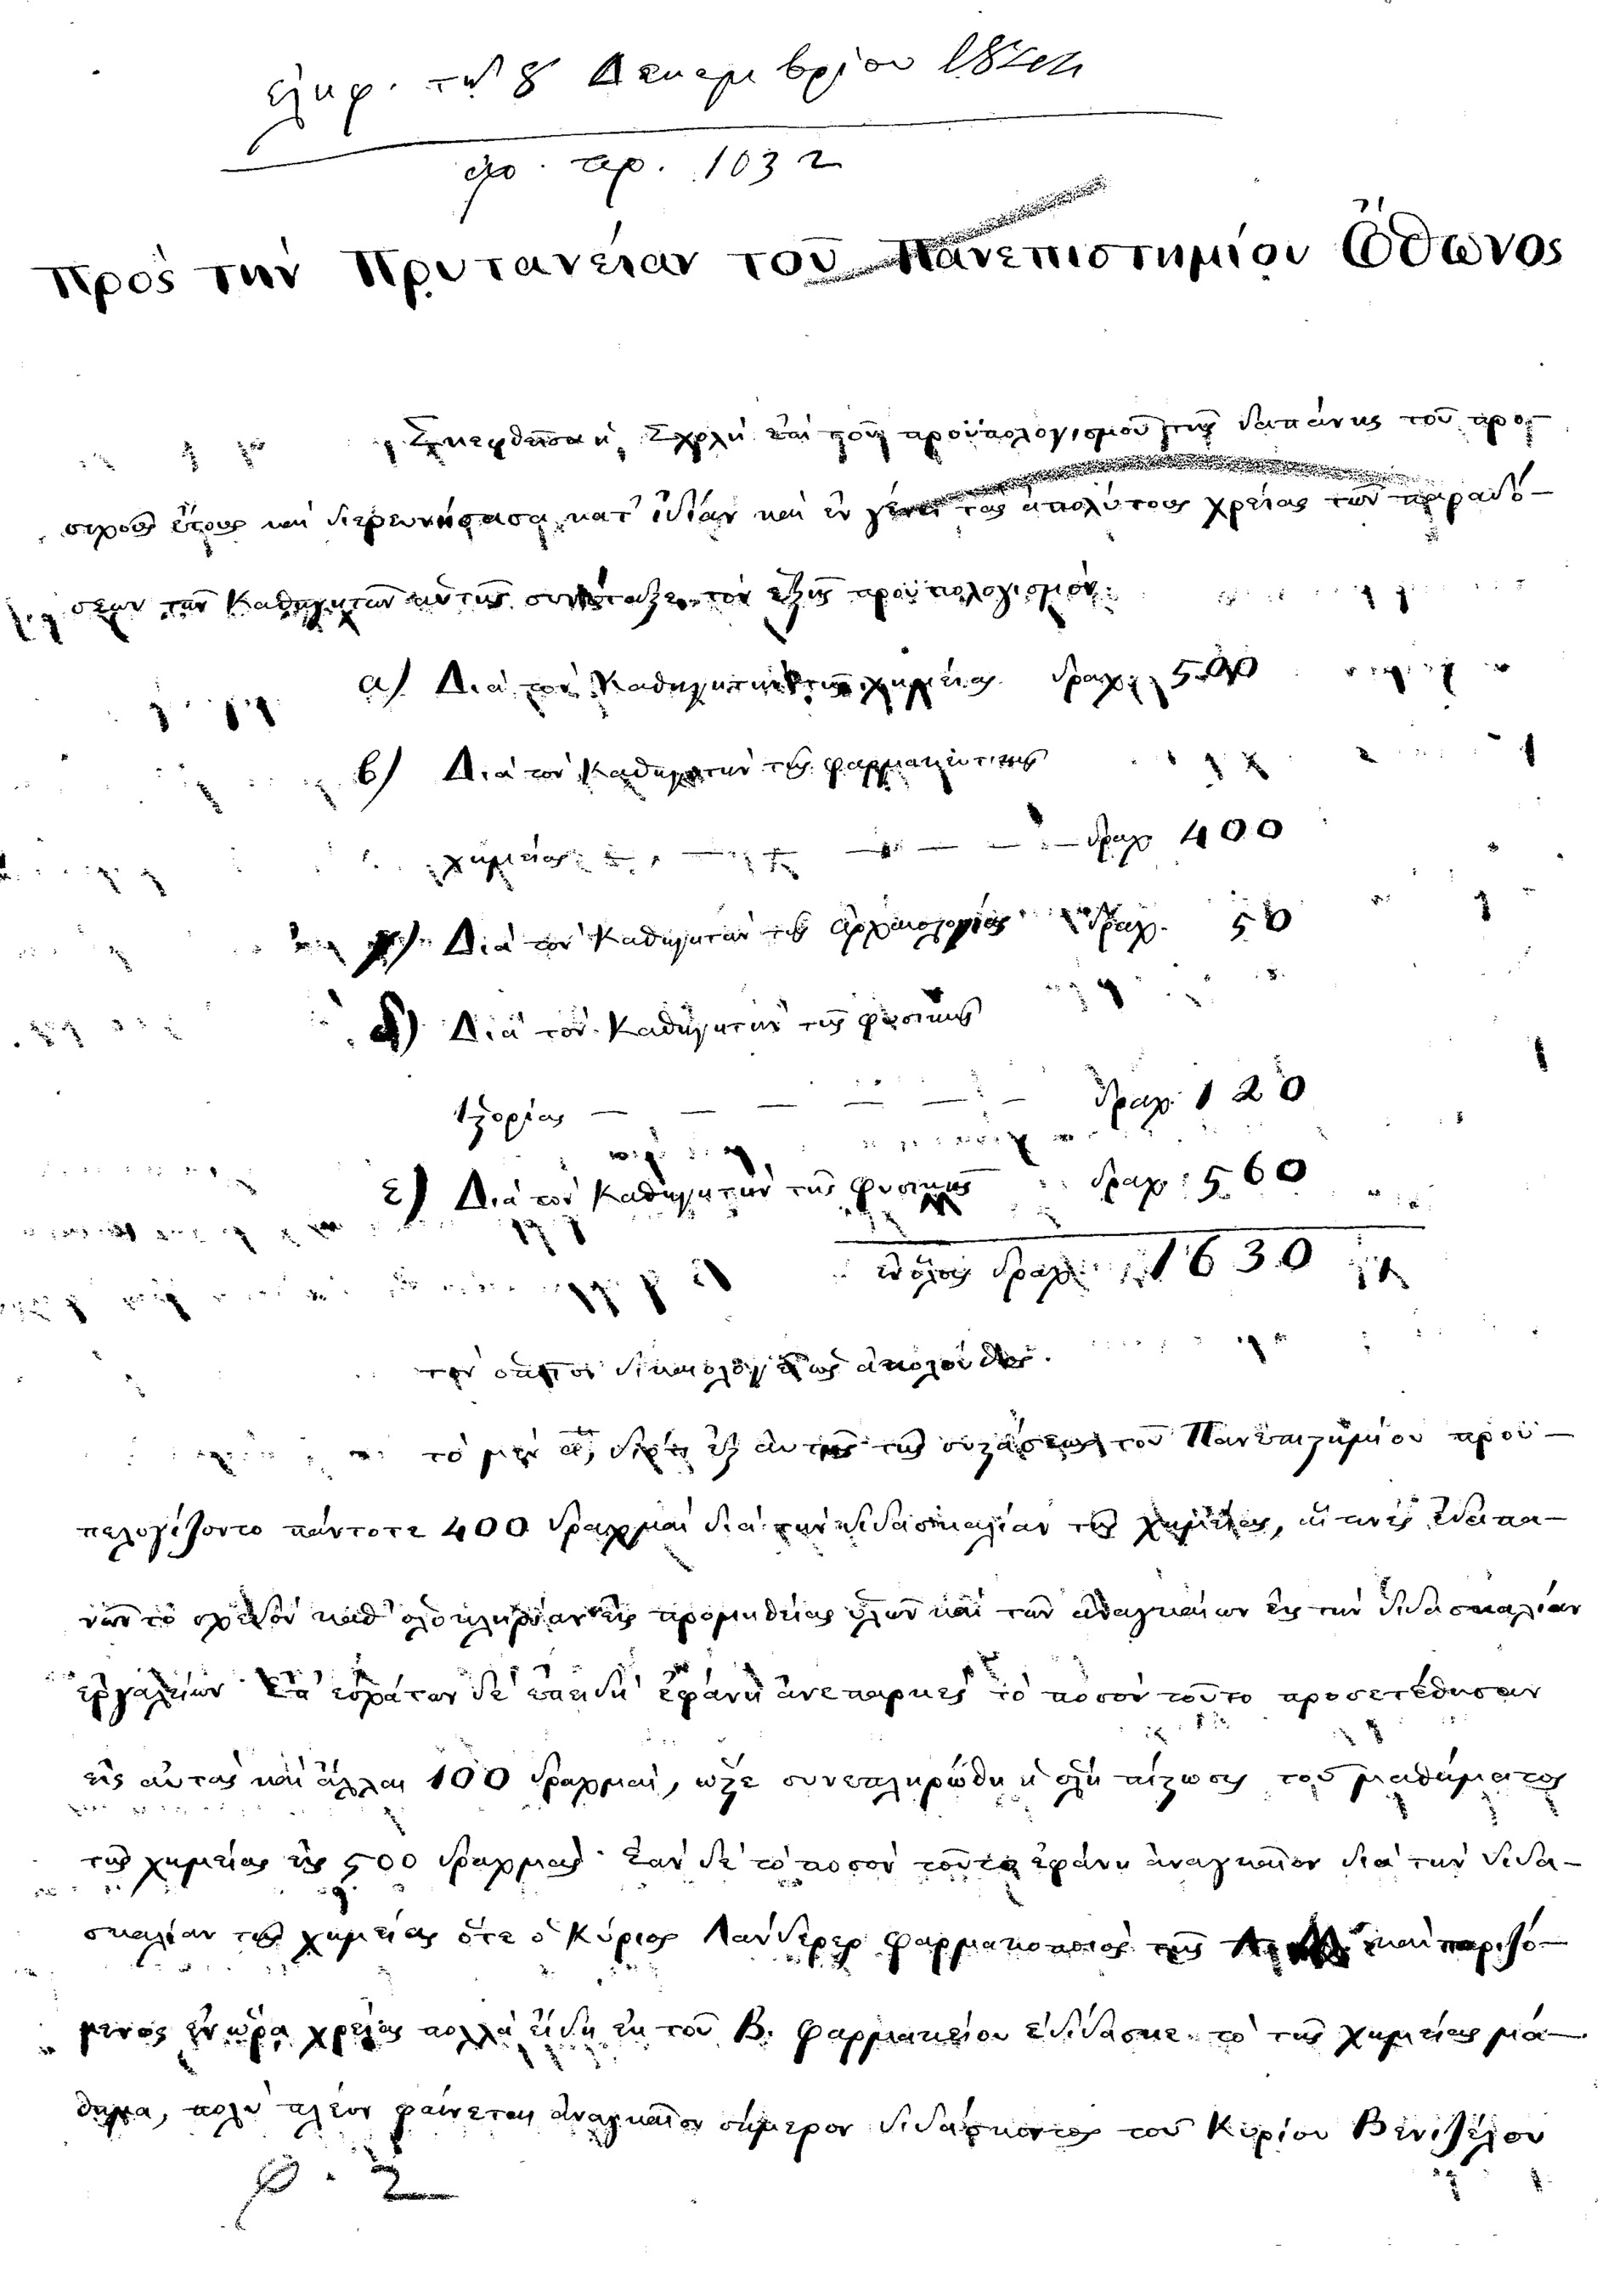 ἐλήφ. τῇ 8 Δεκεμβρίου 1844
ἀρ. πρ. 1032
Πρὸς τὴν Πρυτανείαν τοῦ Πανεπιστημίου Ὄθωνος
Σκεφθεῖσα ἡ Σχολὴ ἐπὶ τοῦ προϋπολογισμοῦ τῆς δαπάνης τοῦ προ-
σεχοῦς ἔτους καὶ διερευνήσασα κατ' ἰδίαν καὶ ἐν γένει τὰς ἀπολύτους χρείας τῶν παραδό-
σεων τῶν Καθηγητῶν αὐτῆς συνέταξε τὸν ἑξῆς προϋπολογισμόν:
α) Διὰ τὸν Καθηγητὴν τῆς χημείας δραχ: 500
β) Διὰ τὸν Καθηγητὴν τῆς φαρμακευτικῆς
χημείας — — — — — δραχ 400
γ) Διὰ τὸν Καθηγητὴν τῆς ἀρχαιολογίας δραχ. 50
δ) Διὰ τὸν Καθηγητὴν τῆς φυσικῆς
ἱστορίας — — — — — — δραχ: 120
ε) Διὰ τὸν Καθηγητὴν τῆς φυσικῆς δραχ: 560
ἐν ὅλοις δραχ: 1630
τὸν ὁποῖον δικαιολογεῖ ὡς ἀκολούθως.
τὸ μὲν α, διότι ἐξ αὐτῆς τῆς συστάσεως τοῦ Πανεπιστημίου προϋ-
πελογίζοντο πάντοτε 400 δραχμαὶ διὰ τὴν διδασκαλίαν τῆς χημείας, αἵτινες ἐδαπα-
νῶντο σχεδὸν καθ' ὁλοκληρίαν εἰς προμηθείας ὑλῶν καὶ τῶν ἀναγκαίων εἰς τὴν διδασκαλίαν
ἐργαλείων Ἐπ' ἐσχάτων δὲ ἐπειδὴ ἐφάνη ἀνεπαρκὲς τὸ ποσὸν τοῦτο προσετέθησαν
εἰς αὐτὰς καὶ ἄλλαι 100 δραχμαί, ὥστε συνεπληρώθη ἡ ὅλη πίστωσις τοῦ μαθήματος
τῆς χημείας εἰς 500 δραχμάς. Ἐὰν δὲ τὸ ποσὸν τοῦτο ἐφάνη ἀναγκαῖον διὰ τὴν διδα-
σκαλίαν τῆς χημείας ὅτε ὁ Κύριος Λάνδερερ φαρμακοποιὸς τῆς καὶ ποριζό-
μενος ἐν ὥρᾳ χρείας πολλὰ εἴδη ἐκ τοῦ Β. φαρμακείου ἐδίδασκε τὸ τῆς χημείας μά-
θημα, πολὺ πλέον φαίνεται ἀναγκαῖον σήμερον διδάσκοντος τοῦ Κυρίου Βενιζέλου
φ. 2